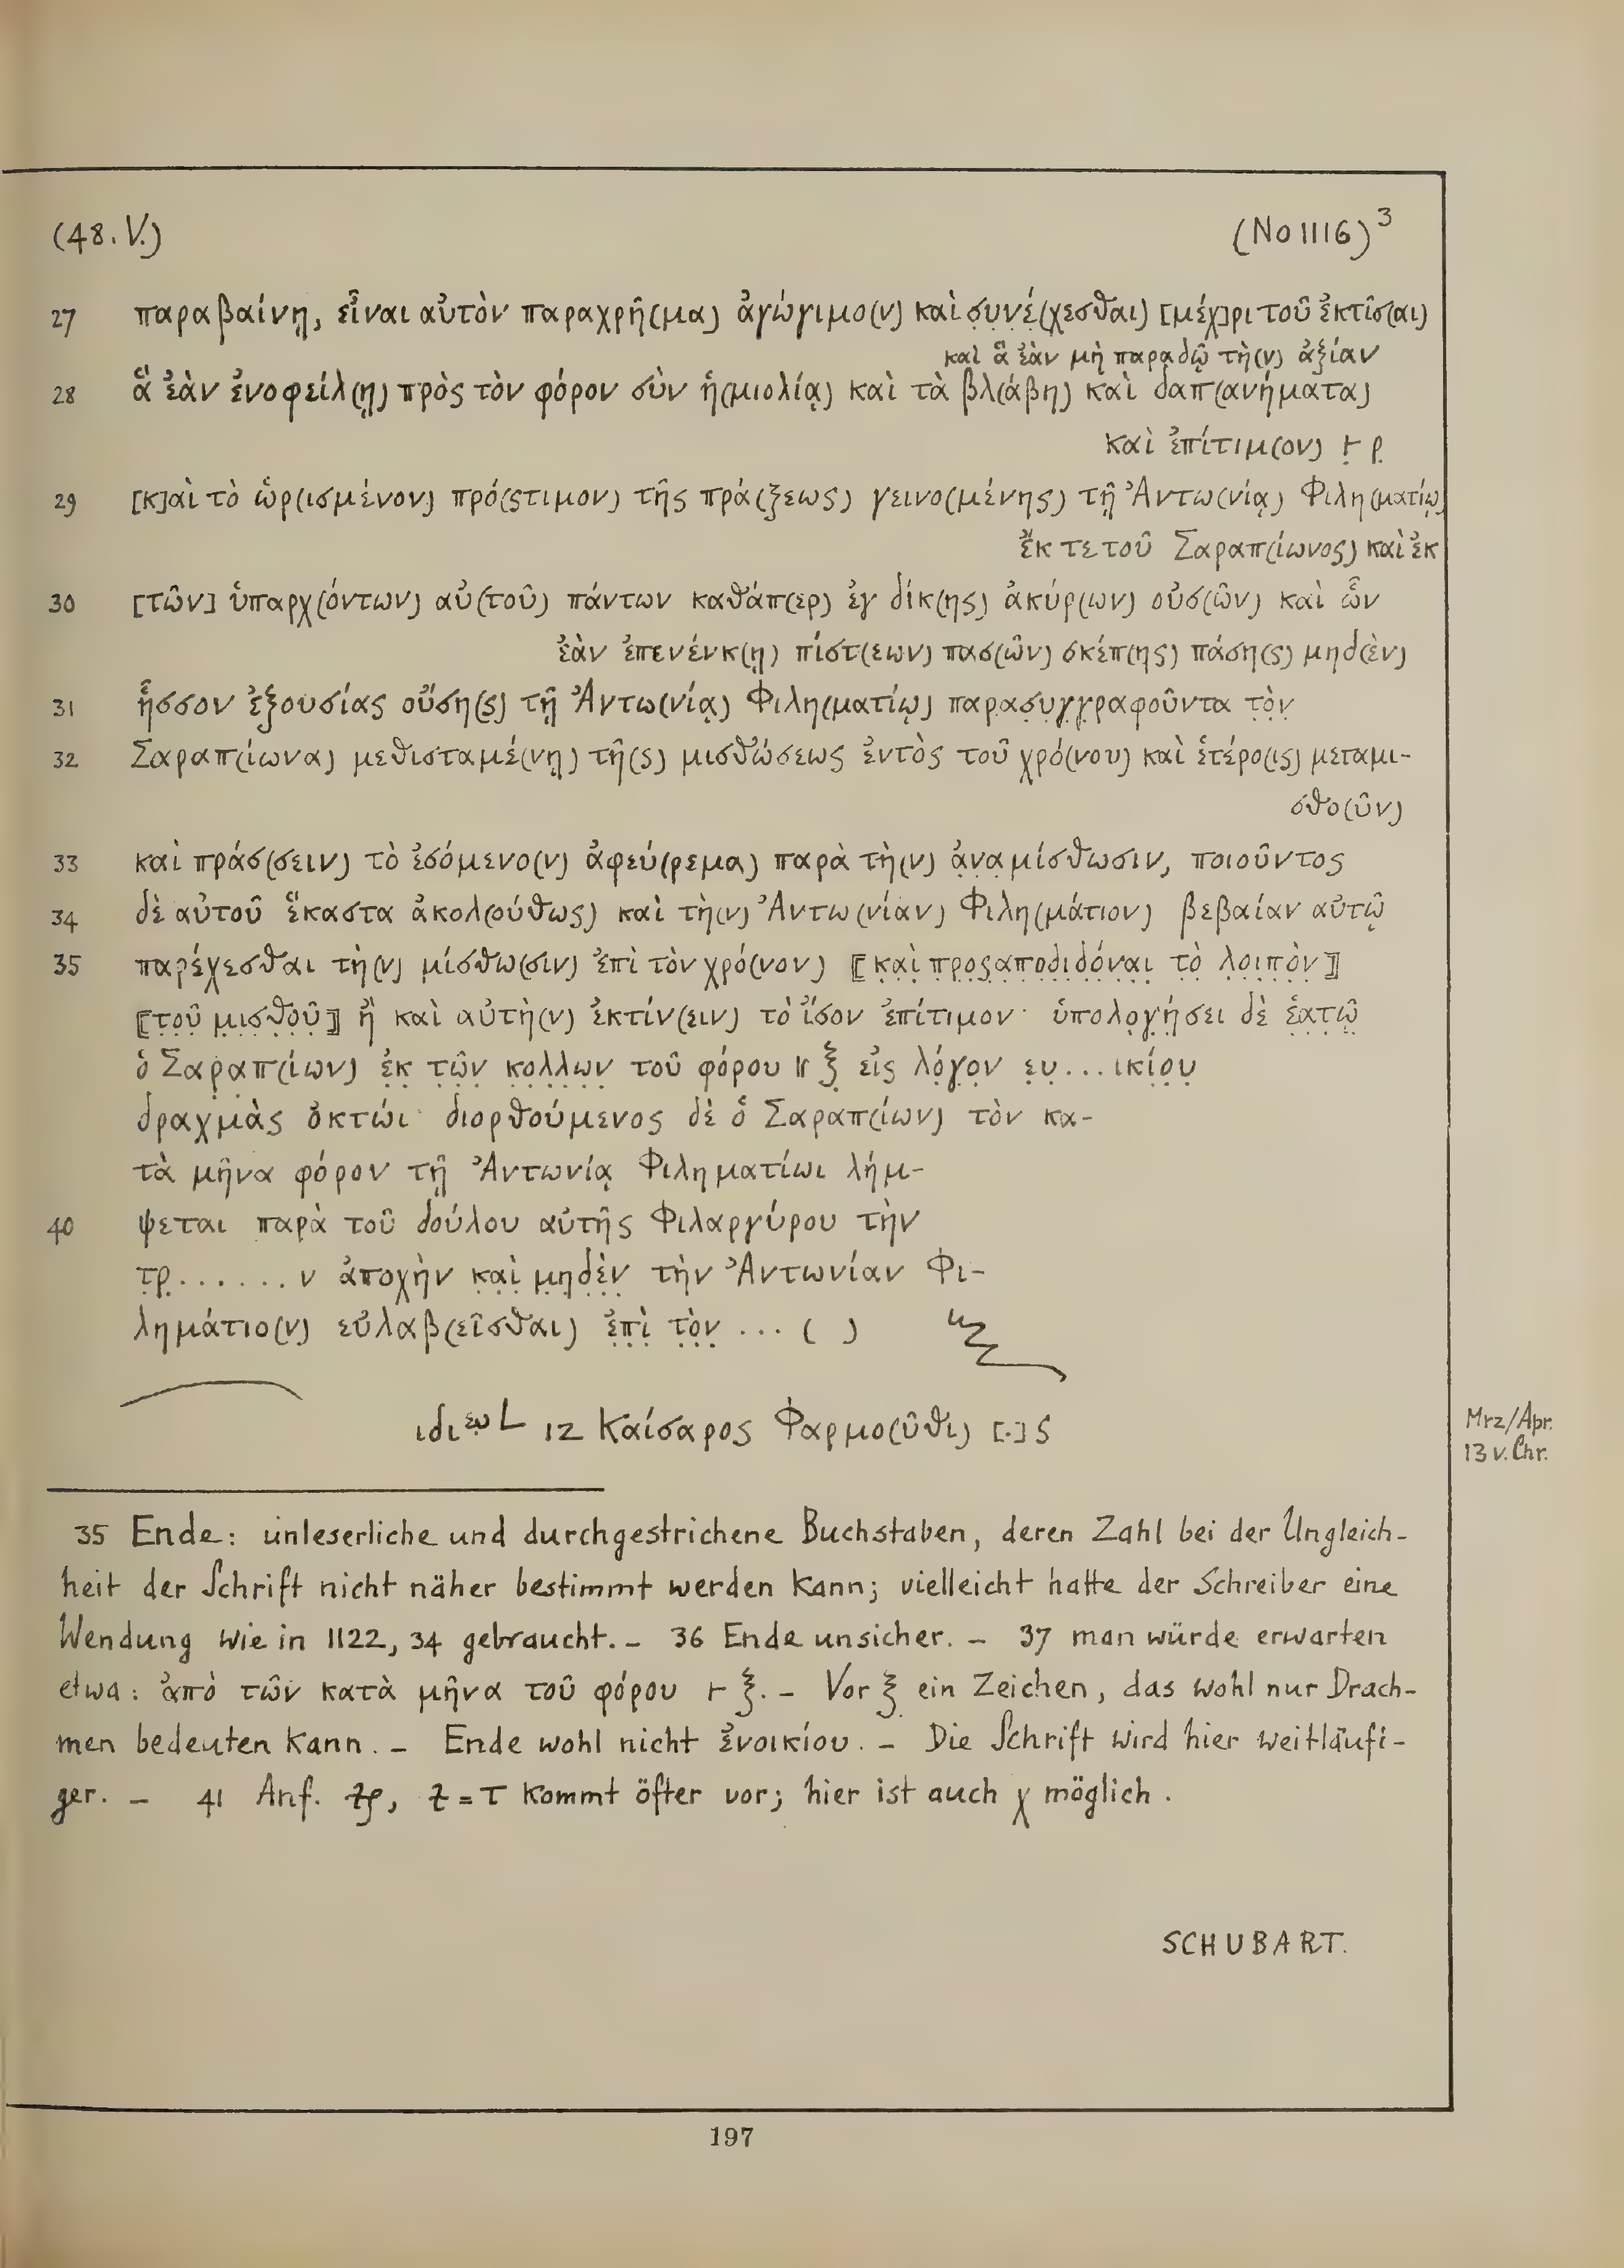 (48. V.) (No 1116)³
27 παραβαίνῃ, εἶναι αὐτὸν παραχρῆ(μα) ἀγώγιμο(ν) καὶ σ̣υ̣ν̣έ̣(χεσθαι) [μέχ]ρι τοῦ ἐκτῖσ(αι)
καὶ ἃ ἐὰν μὴ παραδῷ τὴ(ν) ἀξίαν
28 ἃ ἐὰν ἐνοφείλ(ῃ) πρὸς τὸν φόρον σὺν ἡ(μιολίᾳ) καὶ τὰ βλ(άβη) καὶ δαπ(ανήματα)
καὶ ἐπίτιμ(ον) ⊢̣ ρ̣
29 [κ]αὶ τὸ ὡρ(ισμένον) πρό(ςτιμον) τῆς πρά(ξεως) γεινο(μένης) τῇ Ἀντω(νίᾳ) Φιλη(ματίῳ)
ἔκ τε τοῦ Σαραπ(ίωνος) καὶ ἐκ
30 [τῶν] ὑπαρχ(όντων) αὐ(τοῦ) πάντων καθάπ(ερ) ἐγ δίκ(ης) ἀκύρ(ων) οὐσ(ῶν) καὶ ὧν
ἐὰν ἐπενένκ(ῃ) πίστ(εων) πασ(ῶν) σκέπ(ης) πάση(ς) μηδ(ὲν)
31 ἧσσον ἐξουσίας οὔση(ς) τῇ Ἀντω(νίᾳ) Φιλη(ματίῳ) παρασ̣υ̣γ̣γ̣ραφοῦντα τ̣ὸ̣ν̣
32 Σαραπ(ίωνα) μεθισταμέ(νῃ) τῆ(ς) μισθώσεως ἐντὸς τοῦ χρό(νου) καὶ ἑτέρο(ις) μεταμι-
σθο(ῦν)
33 καὶ πράσ(σειν) τὸ ἐσόμενο(ν) ἀφεύ(ρεμα) παρὰ τὴ(ν) ἀ̣ν̣α̣μίσθωσιν, ποιοῦντος
34 δὲ αὐτοῦ ἕκαστα ἀκολ(ούθως) καὶ τὴ(ν) Ἀντω(νίαν) Φιλη(μάτιον) βεβαίαν αὐτῷ
35 παρέχεσθαι τὴ(ν) μίσθω(σιν) ἐπὶ τὸν χρό(νον) ⟦κ̣α̣ὶ̣ π̣ρ̣ο̣ς̣α̣π̣ο̣δ̣ι̣δ̣ό̣ν̣α̣ι̣ τ̣ὸ̣ λ̣ο̣ι̣π̣ὸ̣ν̣⟧
⟦τ̣ο̣ῦ̣ μ̣ι̣σ̣θ̣ο̣ῦ̣⟧ ἢ καὶ αὐτὴ(ν) ἐκτίν(ειν) τὸ ἴσον ἐπίτιμον· ὑπολο̣γ̣ή̣σει δὲ ἑ̣α̣τ̣ῷ̣
ὁ Σαρ̣α̣π(ίων) ἐ̣κ̣ τ̣ῶ̣ν̣ κ̣ο̣λ̣λ̣ω̣ν̣ τοῦ φόρου ⊢ ξ εἰς λό̣γ̣ο̣ν ε̣υ̣...ικίο̣υ̣
δραχμὰς ὀκτώι· διορθούμενος δὲ ὁ Σαραπ(ίων) τὸν κα-
τὰ μῆνα φόρον τῇ Ἀντωνίᾳ Φιληματίωι λήμ-
40 ψεται παρὰ τοῦ δούλου αὐτῆς Φιλαργύρου τὴν
τ̣ρ̣......ν ἀποχὴν κ̣α̣ὶ̣ μ̣η̣δ̣ὲ̣ν̣ τὴν Ἀντωνίαν Φι-
λημάτιο(ν) εὐλαβ(εῖσθαι) ἐ̣π̣ὶ̣ τ̣ὸ̣ν̣ ...( )
L ιζ Καίσαρος Φαρμο(ῦθι) [.]ς
Mrz/Apr.
13 v. Chr.
35 Ende: unleserliche und durchgestrichene Buchstaben, deren Zahl bei der Ungleich-
heit der Schrift nicht näher bestimmt werden kann; vielleicht hatte der Schreiber eine
Wendung wie in 1122, 34 gebraucht. – 36 Ende unsicher. – 37 man würde erwarten
etwa: ἀπὸ τῶν κατὰ μῆνα τοῦ φόρου ⊢ ξ. – Vor ξ ein Zeichen, das wohl nur Drach-
men bedeuten kann. – Ende wohl nicht ἐνοικίου. – Die Schrift wird hier weitläufi-
ger. – 41 Anf. = τ kommt öfter vor; hier ist auch χ möglich.
SCHUBART.
197